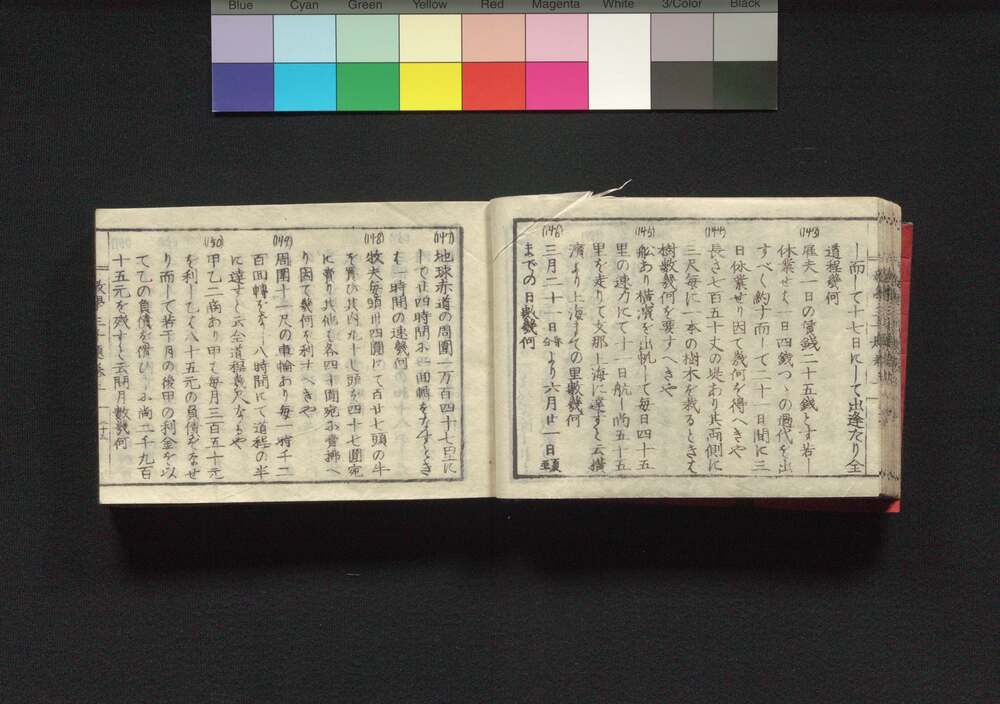 Blue Cyan Green Yellow Red Magenta White 3/Color Black
ー而ーて十七日にーて出逢たり全
道程幾何
(143)
雇夫一日の賃銭二十五銭とす若ー
休業せバ一日四銭つゝの過代を出
すべく約す而ーて二十一日間に三
日休業せり因て幾何を得へきや
(144)
長さ七百五十丈の堤あり其両側に
三尺毎に一本の樹木を栽るときハ
樹数幾何を要すへきや
(145)
舩あり横濱を出帆ーて毎日四十五
里の速力にて十一日航ー尚五十五
里を走りて支那上海に達すと云横
濱より上海まての里数幾何
(146)
三月二十一日より六月廿一日
までの日数幾何
(147)
地球赤道の周囲一万百四十七里に
ーて廿四時間に一回轉をなすとき
ハ一時間の速幾何
(148)
牧夫毎頭廿四圓にて百廿七頭の牛
を買ひ其内九十七頭を四十七圓宛
に賣り其他ハ各四十圓宛に賣拂へ
り因て幾何を利すへきや
(149)
周囲十一尺の車輪あり毎一時千二
百回轉をなー八時間にて道程の半
に達すと云全道程幾尺なりや
(150)
甲乙二商あり甲ハ毎月三百五十元
を利ー乙ハ八十五元の負債をなせ
り而ーて若干月の後甲の利金を以
て乙の負債を償ひーに尚二千九百
十五元を残すと云開月数幾何